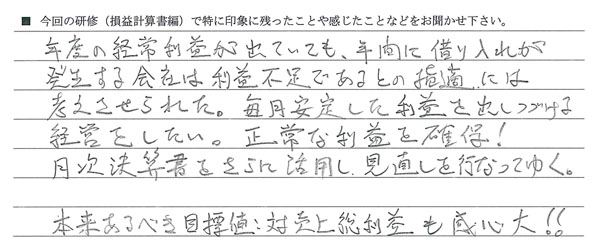 ■ 今回の研修（損益計算書編）で特に印象に残ったことや感じたことなどをお聞かせ下さい。
年度の経常利益が出ていても、年間に借り入れが
発生する会社は利益不足であるとの指摘には
考えさせられた。毎月安定した利益を出しつづける
経営をしたい。正常な利益を確保！
月次決算書をさらに活用し見直しを行なってゆく。
本来あるべき目標値：対売上総利益も感心大!!